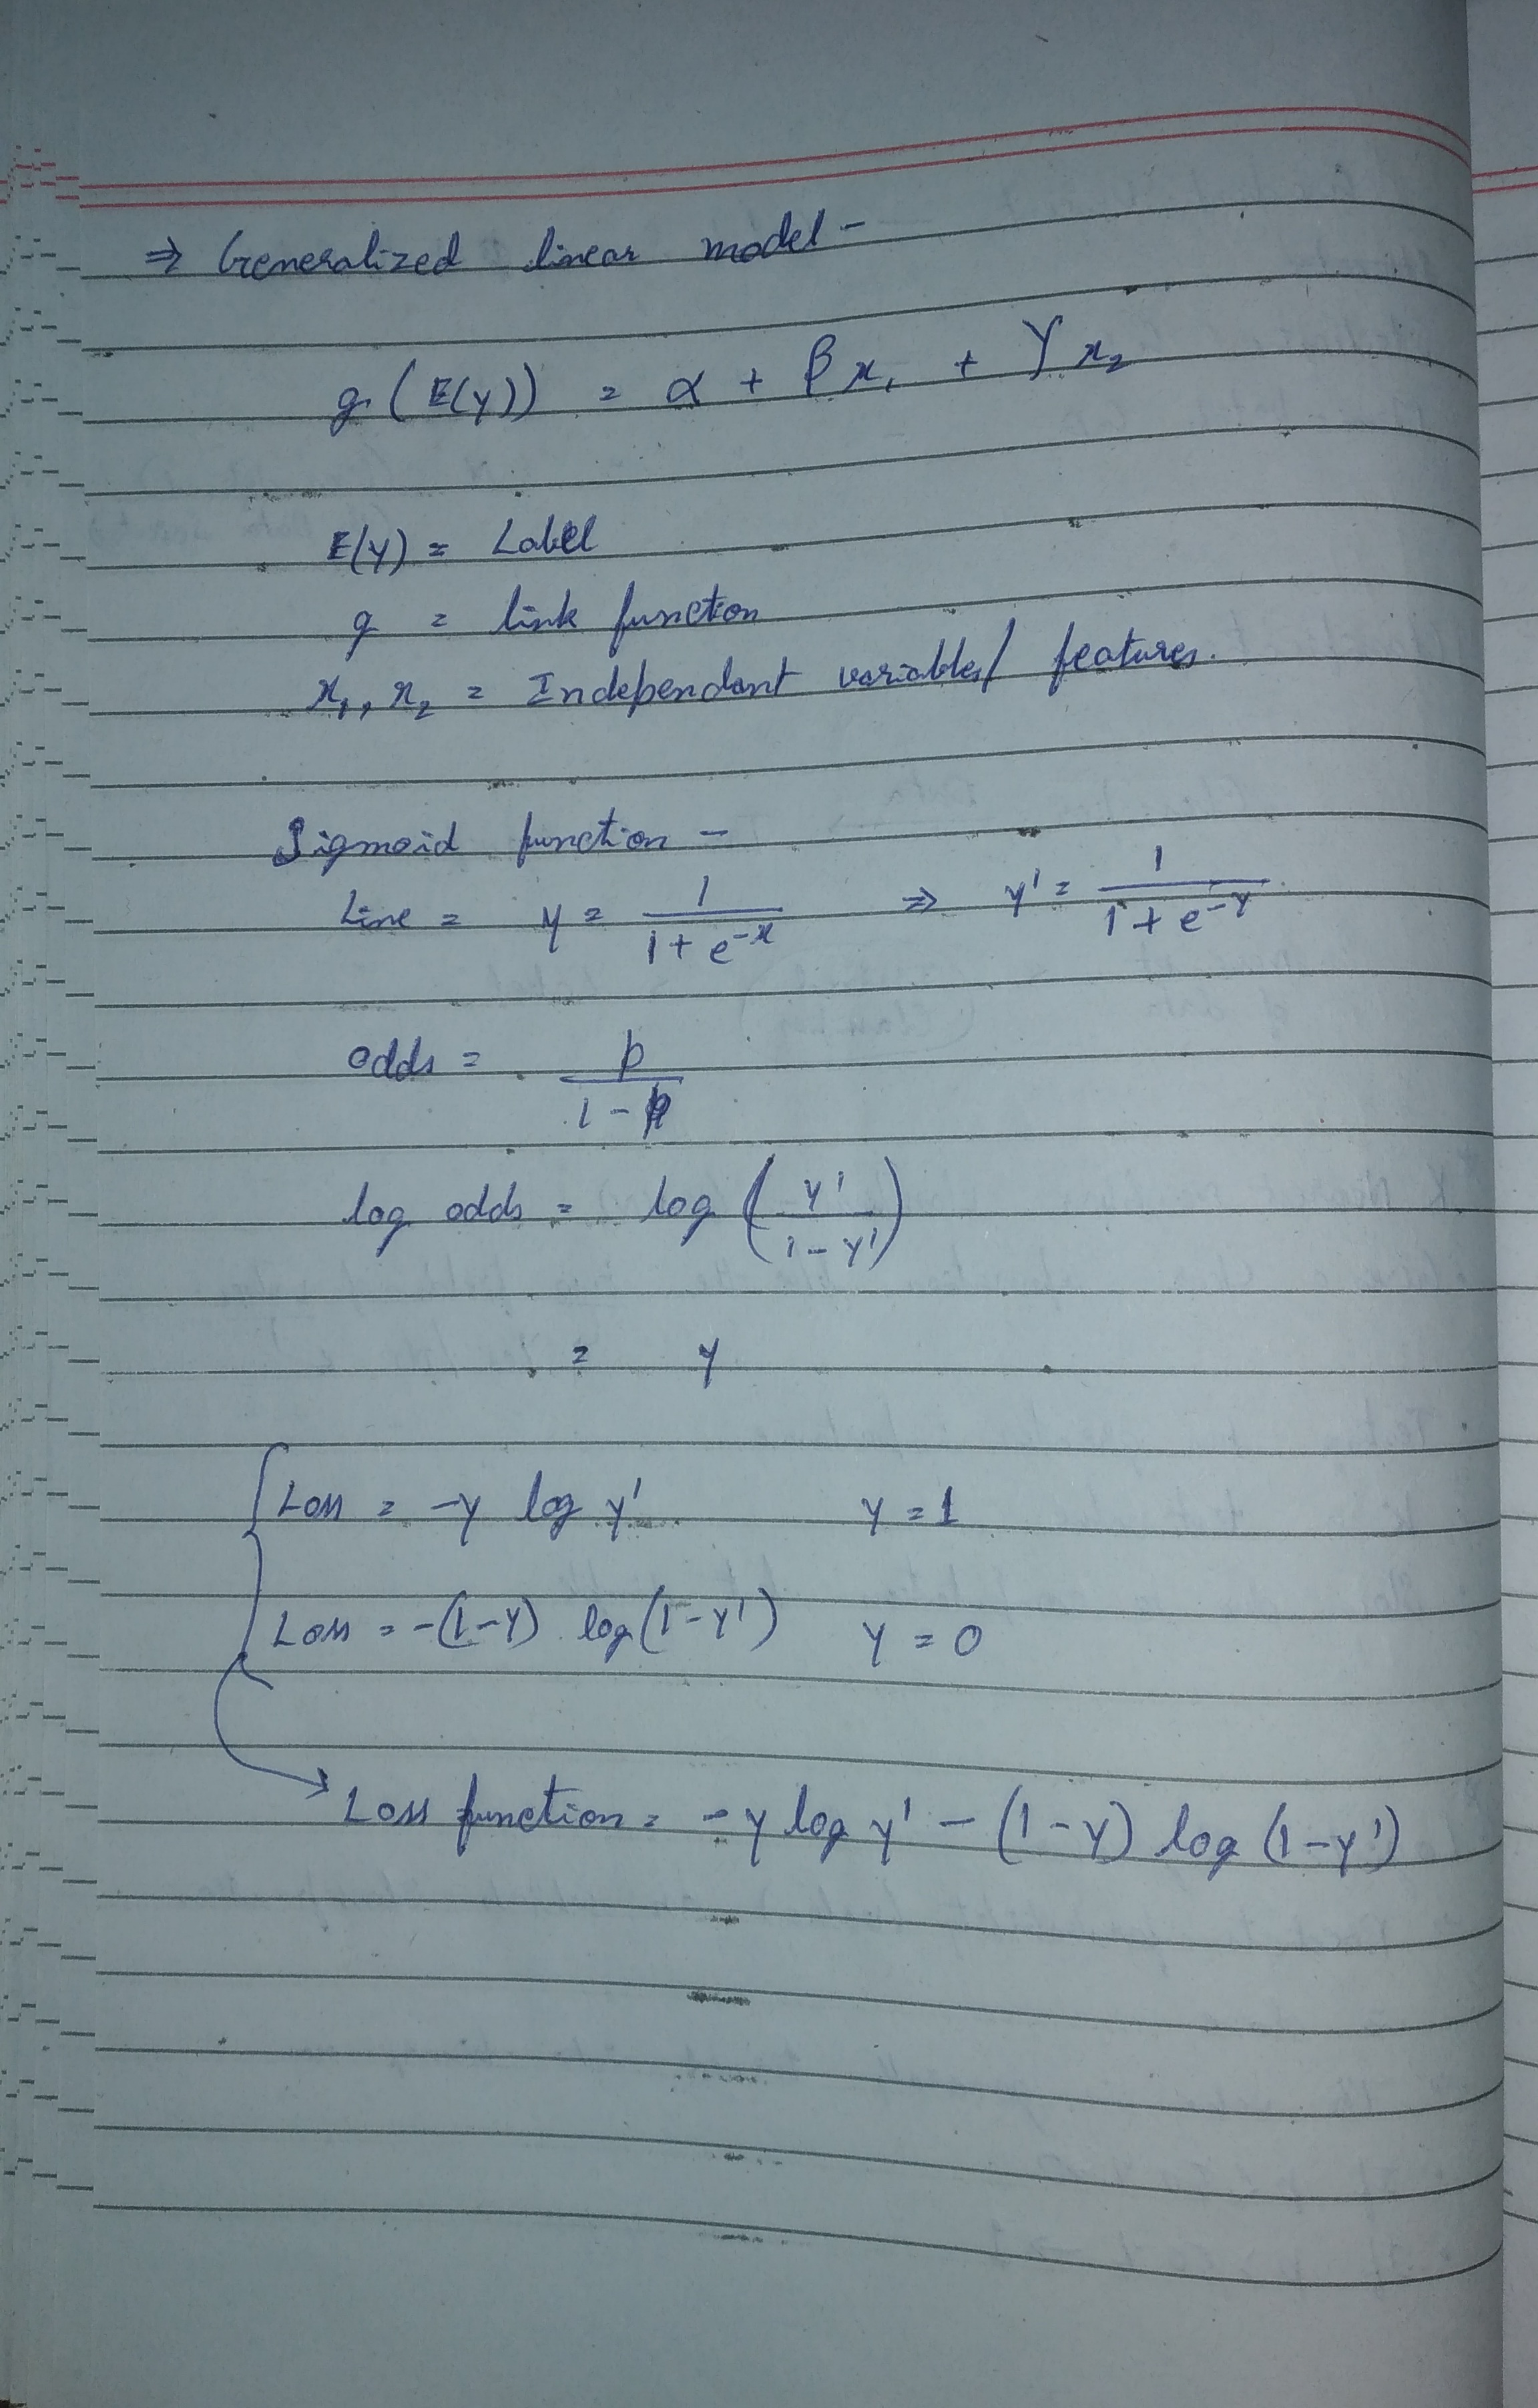 ⇒ Generalized linear model -
g (E(y)) = α + βx₁ + γx₂
E(y) = Label
g = link function
x₁, x₂ = Independant variables/ features.
Sigmoid function -
Line = y = 1/(1 + e^-x) ⇒ y' = 1/(1 + e^-y)
odds = p/(1 - p)
log odds = log (y'/(1 - y'))
= y
Loss = -y log y' y = 1
Loss = -(1-y) log(1-y') y = 0
Loss function = -y log y' - (1-y) log (1-y')